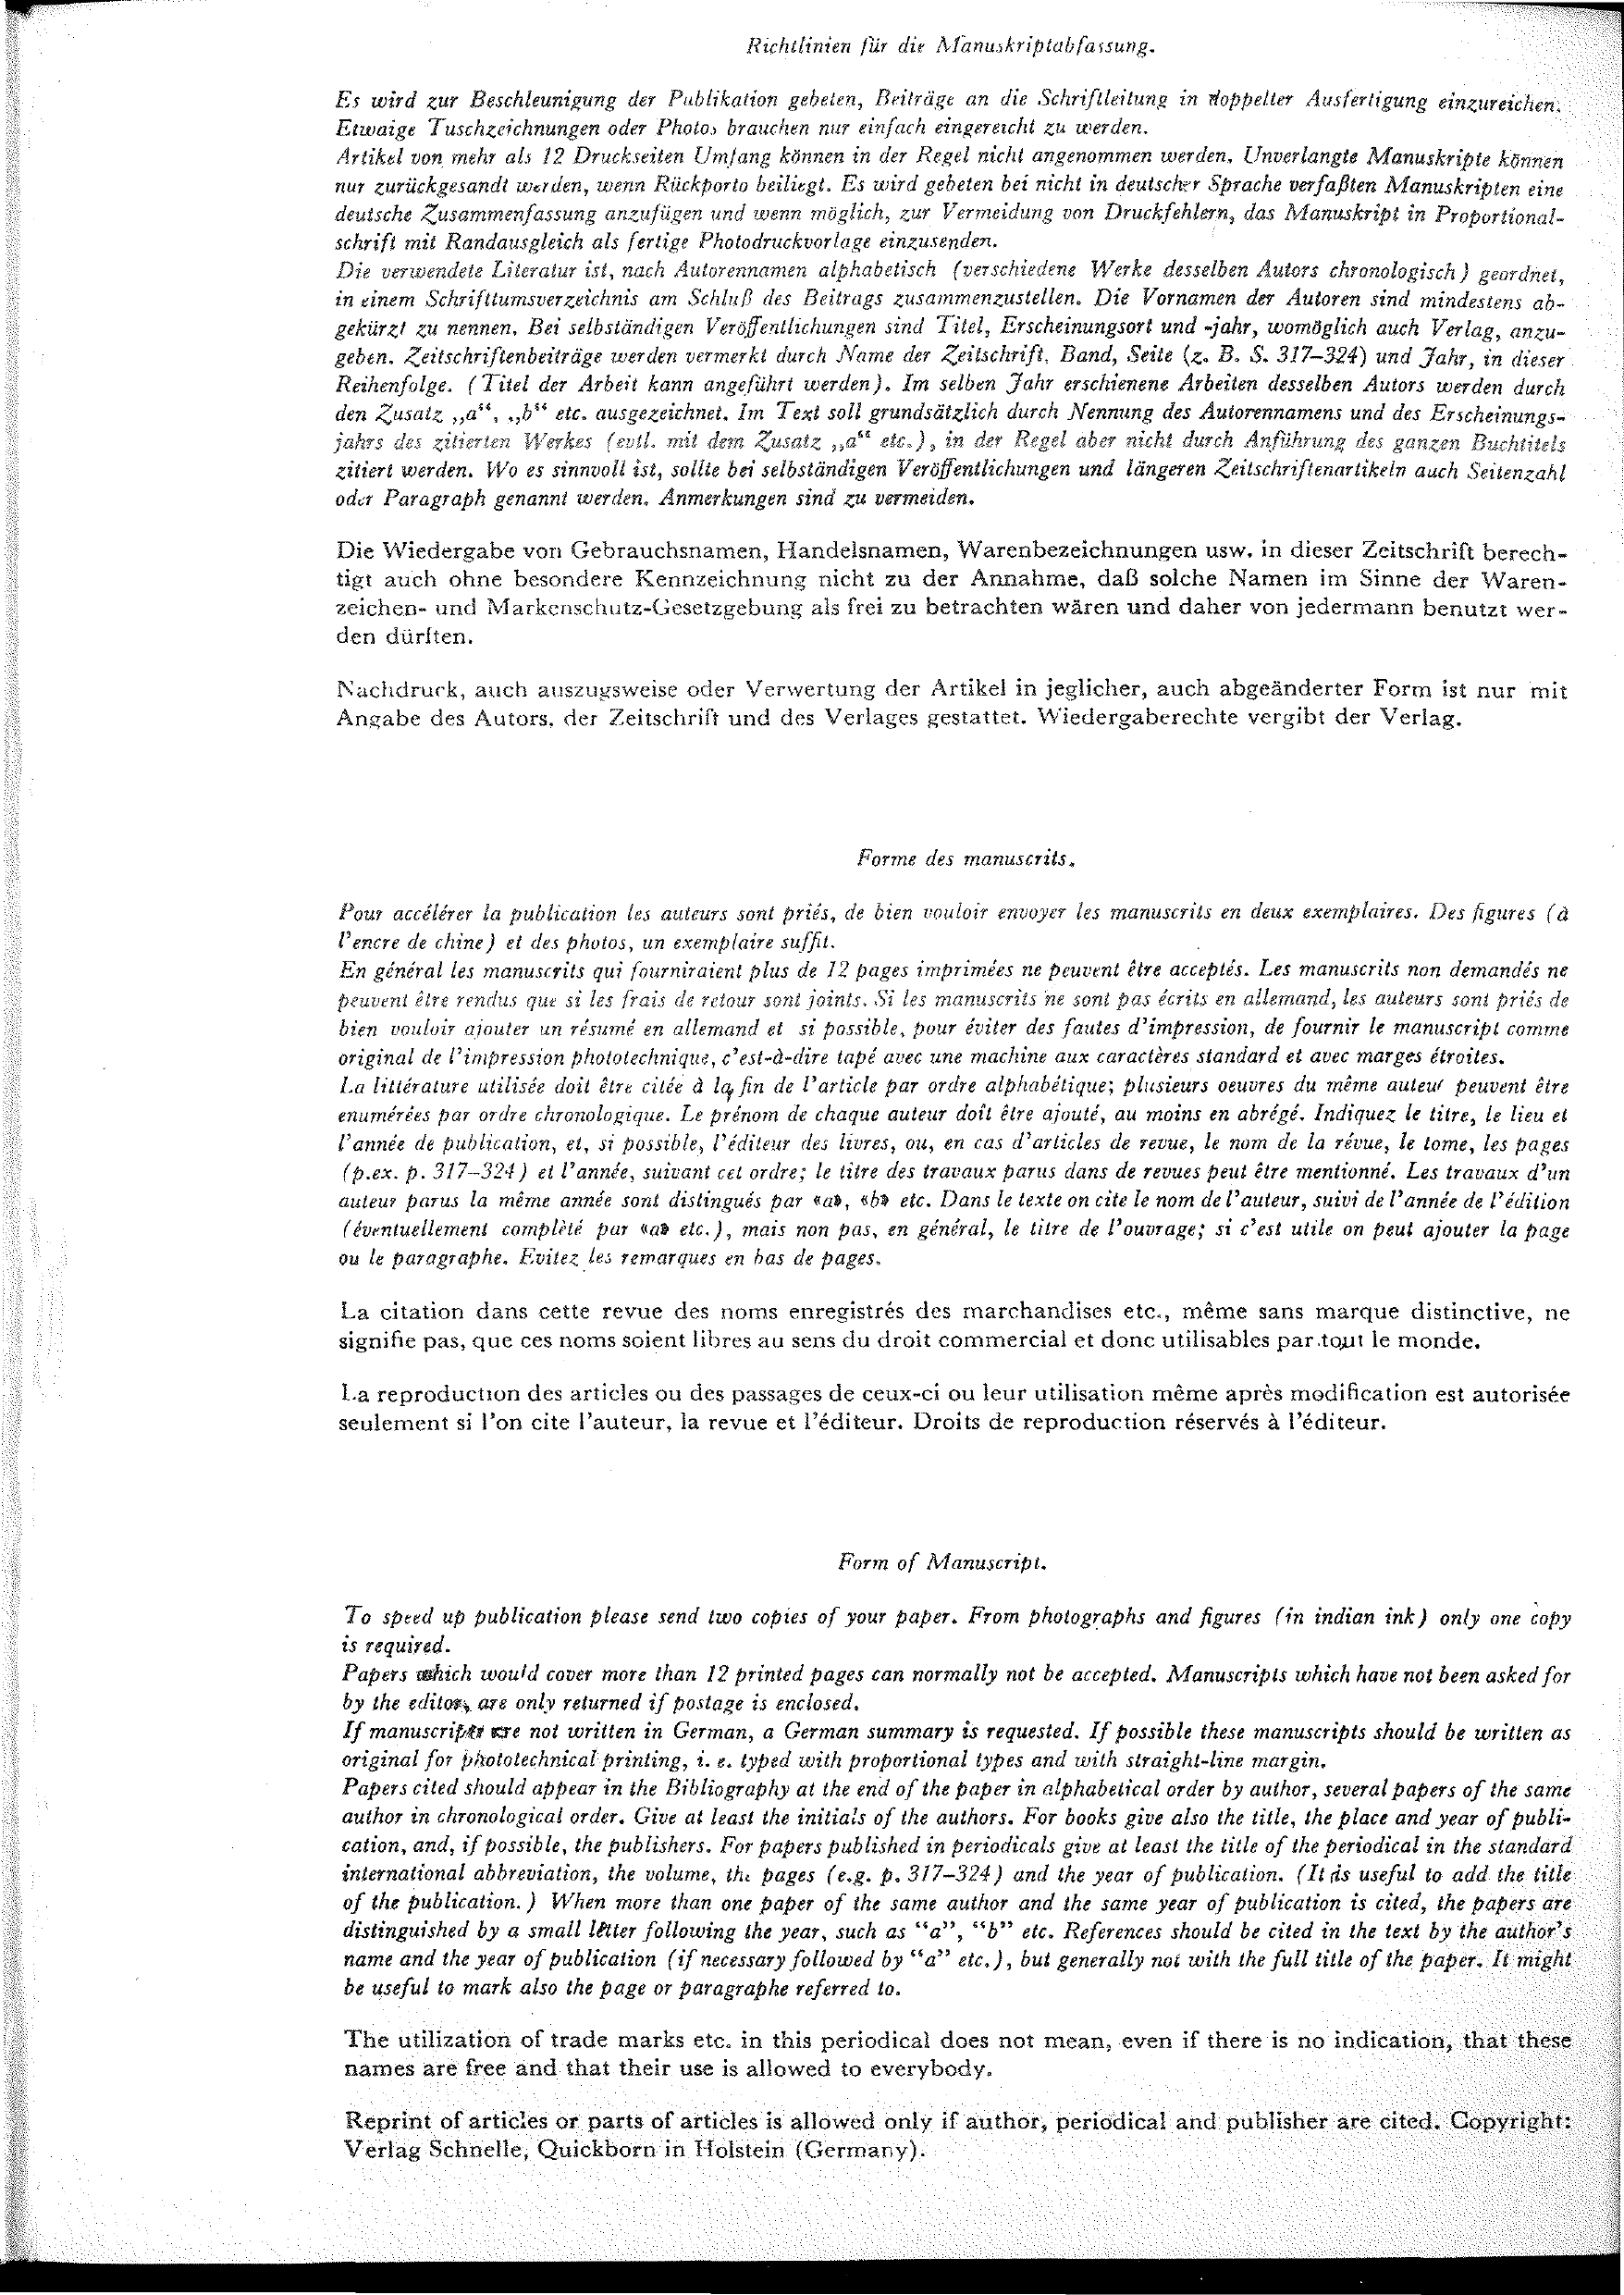 Richtlinien für die Manuskriptabfassung.
Es wird zur Beschleunigung der Publikation gebeten, Beiträge an die Schriftleitung in doppelter Ausfertigung einzureichen.
Etwaige Tuschzeichnungen oder Photos brauchen nur einfach eingereicht zu werden.
Artikel von mehr als 12 Druckseiten Umfang können in der Regel nicht angenommen werden. Unverlangte Manuskripte können
nur zurückgesandt werden, wenn Rückporto beiliegt. Es wird gebeten bei nicht in deutscher Sprache verfaßten Manuskripten eine
deutsche Zusammenfassung anzufügen und wenn möglich, zur Vermeidung von Druckfehlern, das Manuskript in Proportional-
schrift mit Randausgleich als fertige Photodruckvorlage einzusenden.
Die verwendete Literatur ist, nach Autorennamen alphabetisch (verschiedene Werke desselben Autors chronologisch) geordnet,
in einem Schrifttumsverzeichnis am Schluß des Beitrags zusammenzustellen. Die Vornamen der Autoren sind mindestens ab-
gekürzt zu nennen. Bei selbständigen Veröffentlichungen sind Titel, Erscheinungsort und -jahr, womöglich auch Verlag, anzu-
geben. Zeitschriftenbeiträge werden vermerkt durch Name der Zeitschrift, Band, Seite (z. B. S. 317–324) und Jahr, in dieser
Reihenfolge. (Titel der Arbeit kann angeführt werden). Im selben Jahr erschienene Arbeiten desselben Autors werden durch
den Zusatz „a“, „b“ etc. ausgezeichnet. Im Text soll grundsätzlich durch Nennung des Autorennamens und des Erscheinungs-
jahrs des zitierten Werkes (evtl. mit dem Zusatz „a“ etc.), in der Regel aber nicht durch Anführung des ganzen Buchtitels
zitiert werden. Wo es sinnvoll ist, sollte bei selbständigen Veröffentlichungen und längeren Zeitschriftenartikeln auch Seitenzahl
oder Paragraph genannt werden. Anmerkungen sind zu vermeiden.
Die Wiedergabe von Gebrauchsnamen, Handelsnamen, Warenbezeichnungen usw. in dieser Zeitschrift berech-
tigt auch ohne besondere Kennzeichnung nicht zu der Annahme, daß solche Namen im Sinne der Waren-
zeichen- und Markenschutz-Gesetzgebung als frei zu betrachten wären und daher von jedermann benutzt wer-
den dürften.
Nachdruck, auch auszugsweise oder Verwertung der Artikel in jeglicher, auch abgeänderter Form ist nur mit
Angabe des Autors, der Zeitschrift und des Verlages gestattet. Wiedergaberechte vergibt der Verlag.
Forme des manuscrits.
Pour accélérer la publication les auteurs sont priés, de bien vouloir envoyer les manuscrits en deux exemplaires. Des figures (à
l'encre de chine) et des photos, un exemplaire suffit.
En général les manuscrits qui fourniraient plus de 12 pages imprimées ne peuvent être acceptés. Les manuscrits non demandés ne
peuvent être rendus que si les frais de retour sont joints. Si les manuscrits ne sont pas écrits en allemand, les auteurs sont priés de
bien vouloir ajouter un résumé en allemand et si possible, pour éviter des fautes d'impression, de fournir le manuscript comme
original de l'impression phototechnique, c'est-à-dire tapé avec une machine aux caractères standard et avec marges étroites.
La littérature utilisée doit être citée à la fin de l'article par ordre alphabétique; plusieurs oeuvres du même auteur peuvent être
enumérées par ordre chronologique. Le prénom de chaque auteur doit être ajouté, au moins en abrégé. Indiquez le titre, le lieu et
l'année de publication, et, si possible, l'éditeur des livres, ou, en cas d'articles de revue, le nom de la révue, le tome, les pages
(p.ex. p. 317–324) et l'année, suivant cet ordre; le titre des travaux parus dans de revues peut être mentionné. Les travaux d'un
auteur parus la même année sont distingués par «a», «b» etc. Dans le texte on cite le nom de l'auteur, suivi de l'année de l'édition
(éventuellement complèté par «a» etc.), mais non pas, en général, le titre de l'ouvrage; si c'est utile on peut ajouter la page
ou le paragraphe. Evitez les remarques en bas de pages.
La citation dans cette revue des noms enregistrés des marchandises etc., même sans marque distinctive, ne
signifie pas, que ces noms soient libres au sens du droit commercial et donc utilisables par tout le monde.
La reproduction des articles ou des passages de ceux-ci ou leur utilisation même après modification est autorisée
seulement si l'on cite l'auteur, la revue et l'éditeur. Droits de reproduction réservés à l'éditeur.
Form of Manuscript.
To speed up publication please send two copies of your paper. From photographs and figures (in indian ink) only one copy
is required.
Papers which would cover more than 12 printed pages can normally not be accepted. Manuscripts which have not been asked for
by the editor, are only returned if postage is enclosed.
If manuscripts are not written in German, a German summary is requested. If possible these manuscripts should be written as
original for phototechnical printing, i. e. typed with proportional types and with straight-line margin.
Papers cited should appear in the Bibliography at the end of the paper in alphabetical order by author, several papers of the same
author in chronological order. Give at least the initials of the authors. For books give also the title, the place and year of publi-
cation, and, if possible, the publishers. For papers published in periodicals give at least the title of the periodical in the standard
international abbreviation, the volume, the pages (e.g. p. 317–324) and the year of publication. (It is useful to add the title
of the publication.) When more than one paper of the same author and the same year of publication is cited, the papers are
distinguished by a small letter following the year, such as “a”, “b” etc. References should be cited in the text by the author's
name and the year of publication (if necessary followed by “a” etc.), but generally not with the full title of the paper. It might
be useful to mark also the page or paragraphe referred to.
The utilization of trade marks etc. in this periodical does not mean, even if there is no indication, that these
names are free and that their use is allowed to everybody.
Reprint of articles or parts of articles is allowed only if author, periodical and publisher are cited. Copyright:
Verlag Schnelle, Quickborn in Holstein (Germany).